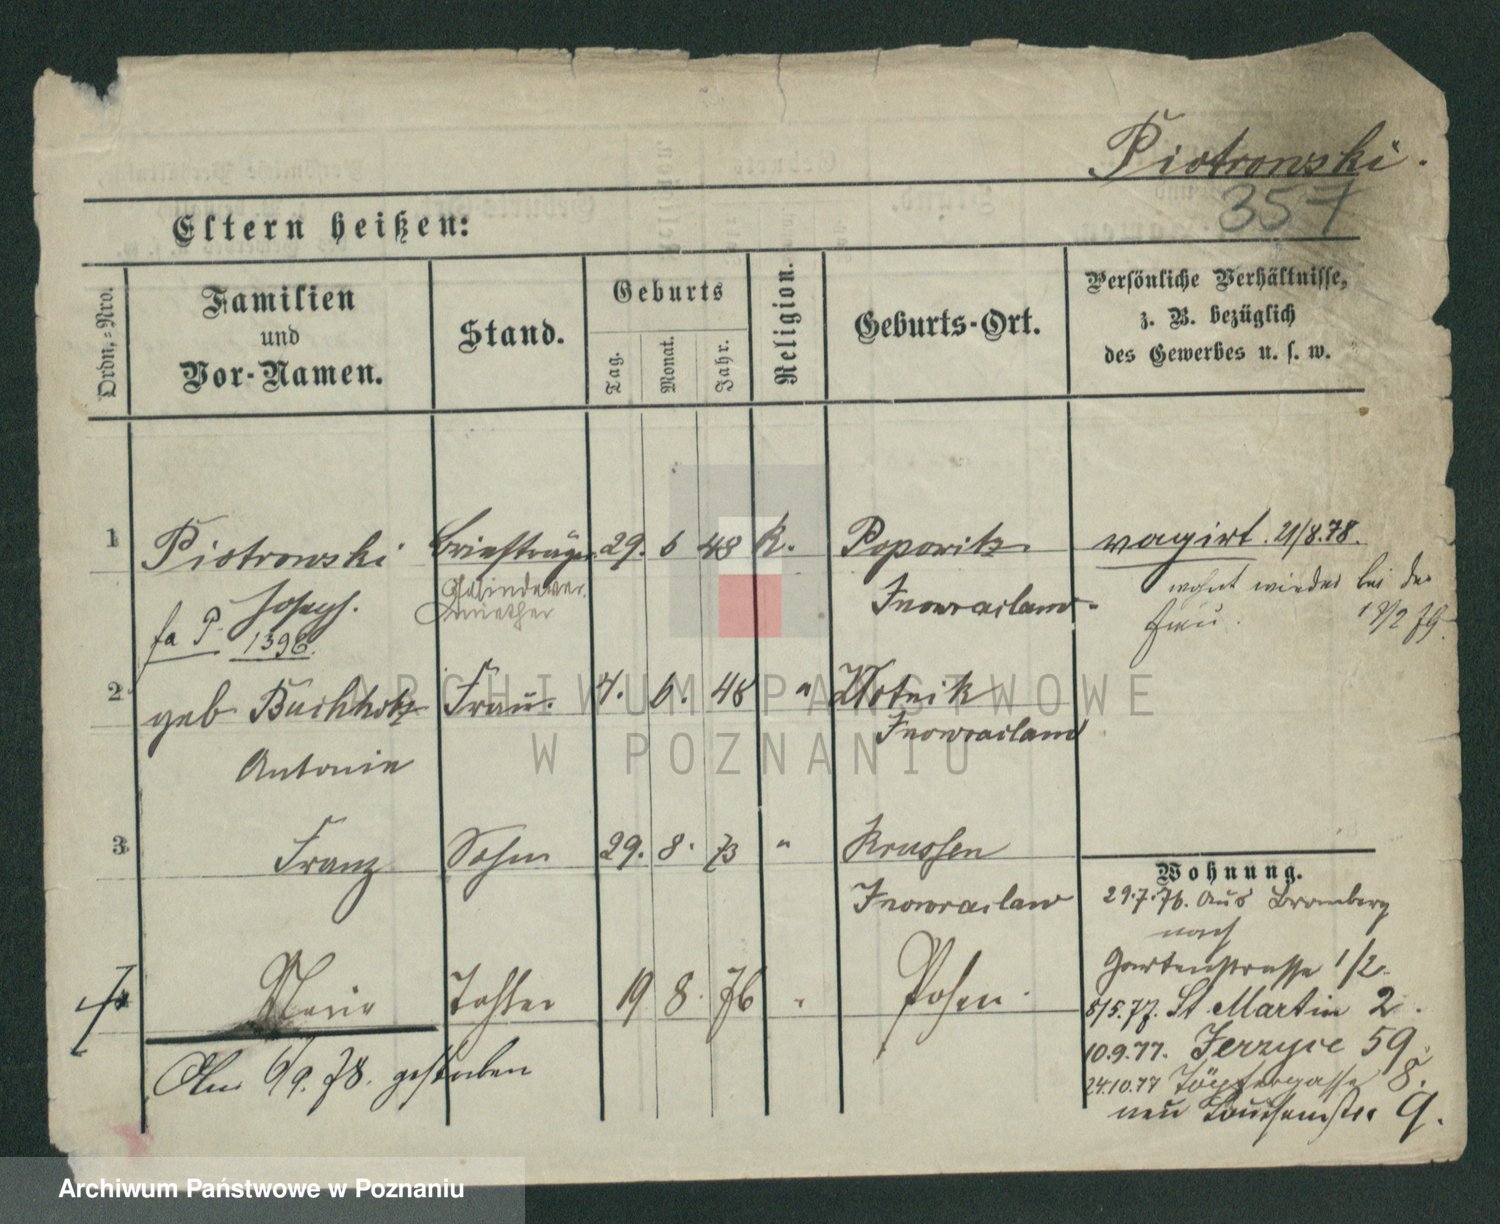 Piotrowski.
357
Eltern heißen:
Ordn.-Nro.
Familien
und
Vor-Namen.
Stand.
Geburts
Tag.
Monat.
Jahr.
Religion.
Geburts-Ort.
Persönliche Verhältnisse,
z. B. bezüglich
des Gewerbes u. s. w.
1 Piotrowski Briefträger 29. 6 48 K. Popowitz vagirt. 21/8.78.
Joseph. Gesindever. Inowraclaw. wohnt wieder bei der
miether Frau. 18/2 79.
fa P. 1396.
2 geb Buchholz Frau. 7. 6. 48 "
Antonie Inowraclaw
3 Franz Sohn 29. 8. 73 " Kruschen
Inowraclaw
Wohnung.
29.7.76. Aus Bromberg
nach
Gartenstrasse 1/2.
4 Marie Tochter 19 8. 76 " Posen.
8/5.77. St. Martin 2.
10.9.77. Jerzyce 59.
24.10.77 Töpfergasse 8.
neu Louisenstr. 9.
Am 6/9. 78. gestorben
ARCHIWUM PAŃSTWOWE
W POZNANIU
Archiwum Państwowe w Poznaniu